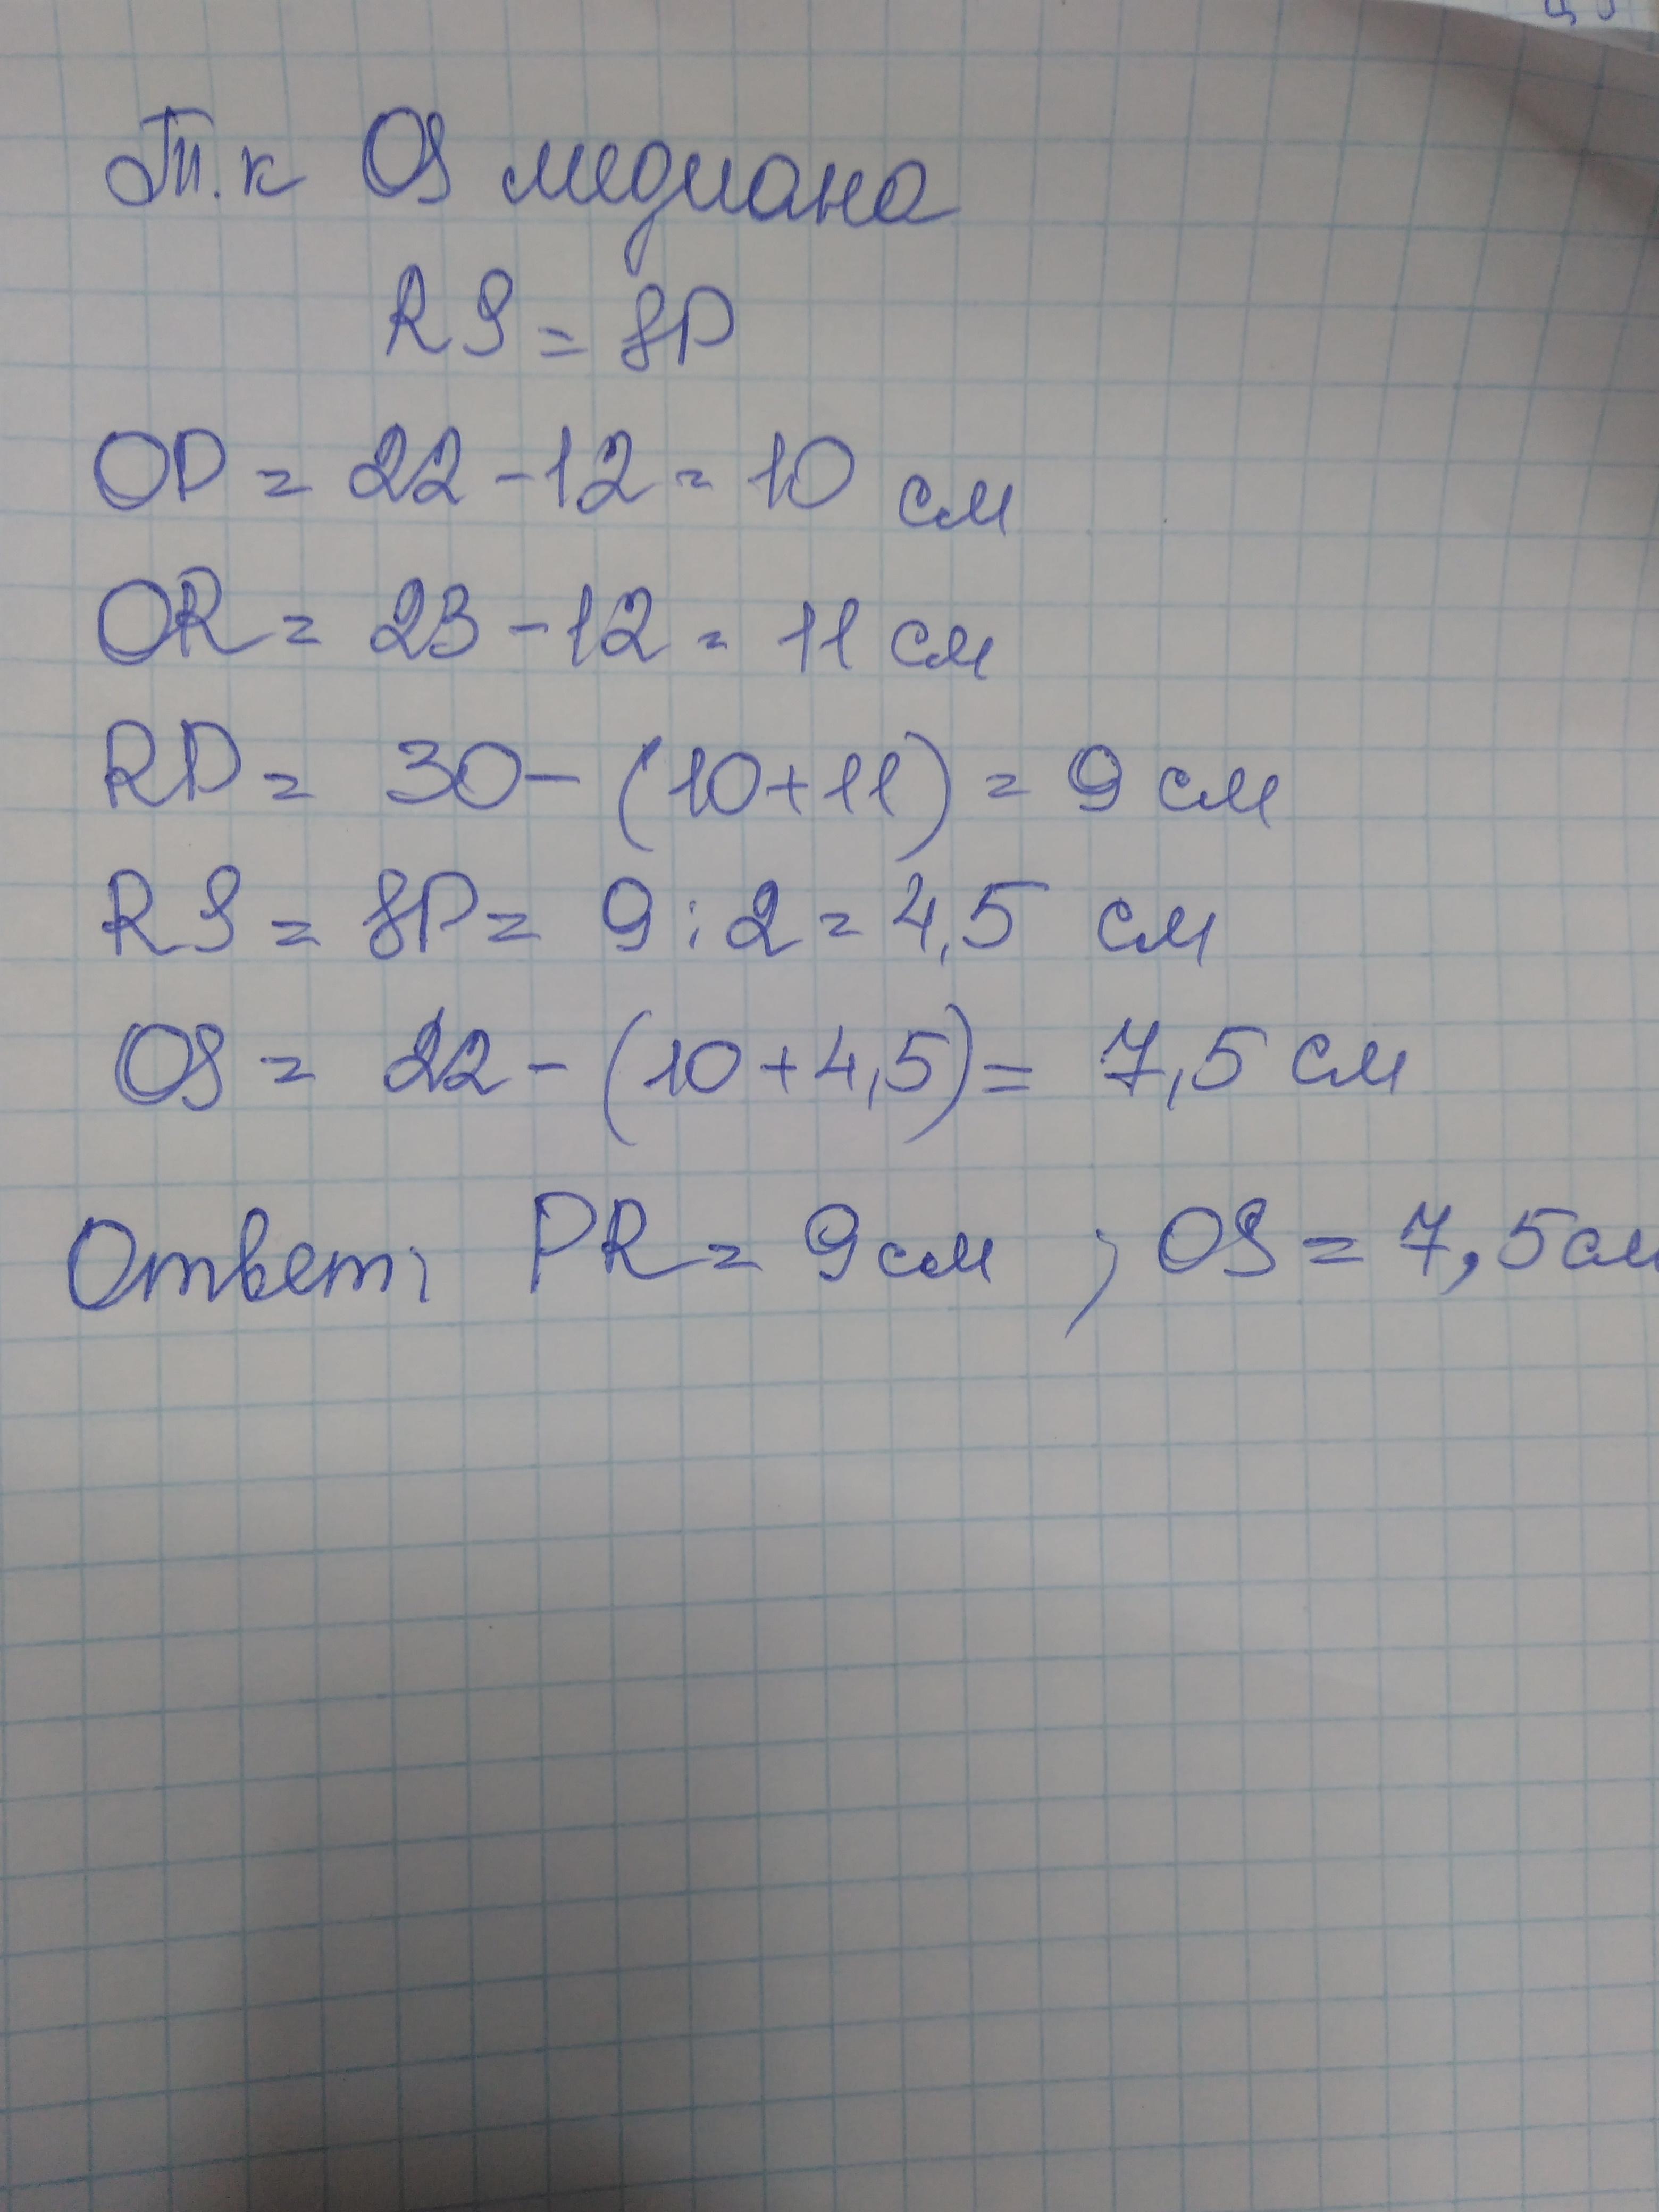 Т.к OS медиана
RS = SP
OP = 22 - 12 = 10 см
OR = 23 - 12 = 11 см
RP = 30 - (10 + 11) = 9 см
RS = SP = 9 : 2 = 4,5 см
OS = 22 - (10 + 4,5) = 7,5 см
Ответ: PR = 9 см ; OS = 7,5 см